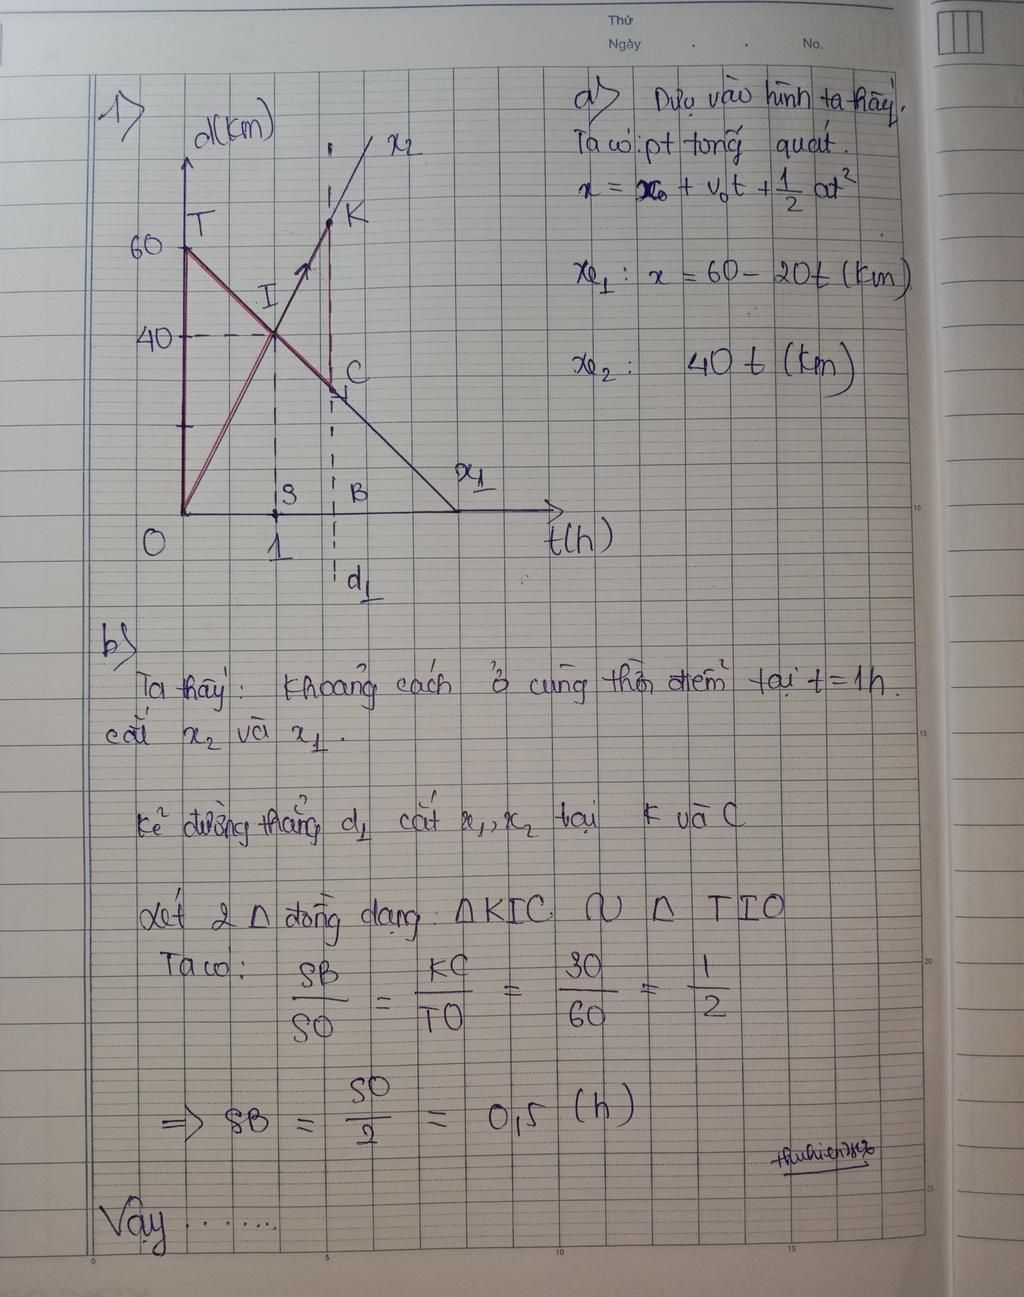 Thứ
Ngày . . No.
1)
d(km)
x2
K
T
60
I
40
C
S
B
x1
O
1
t(h)
d1
a) Dựa vào hình ta thấy.
Ta có: pt tổng quát.
x = x₀ + v₀t + 1/2 at²
xe1: x = 60 - 20t (km)
xe2: 40t (km)
b)
Ta thấy: Khoảng cách ở cùng thời điểm tại t = 1h.
cắt x2 và x1.
Kẻ đường thẳng d1 cắt x1, x2 tại K và C
Xét 2 Δ đồng dạng. ΔKIC ∽ Δ TIO
Ta có: SB/SO = KC/TO = 30/60 = 1/2
=> SB = SO/2 = 0,5 (h)
Vậy .......
10
15
20
25
0
5
10
15